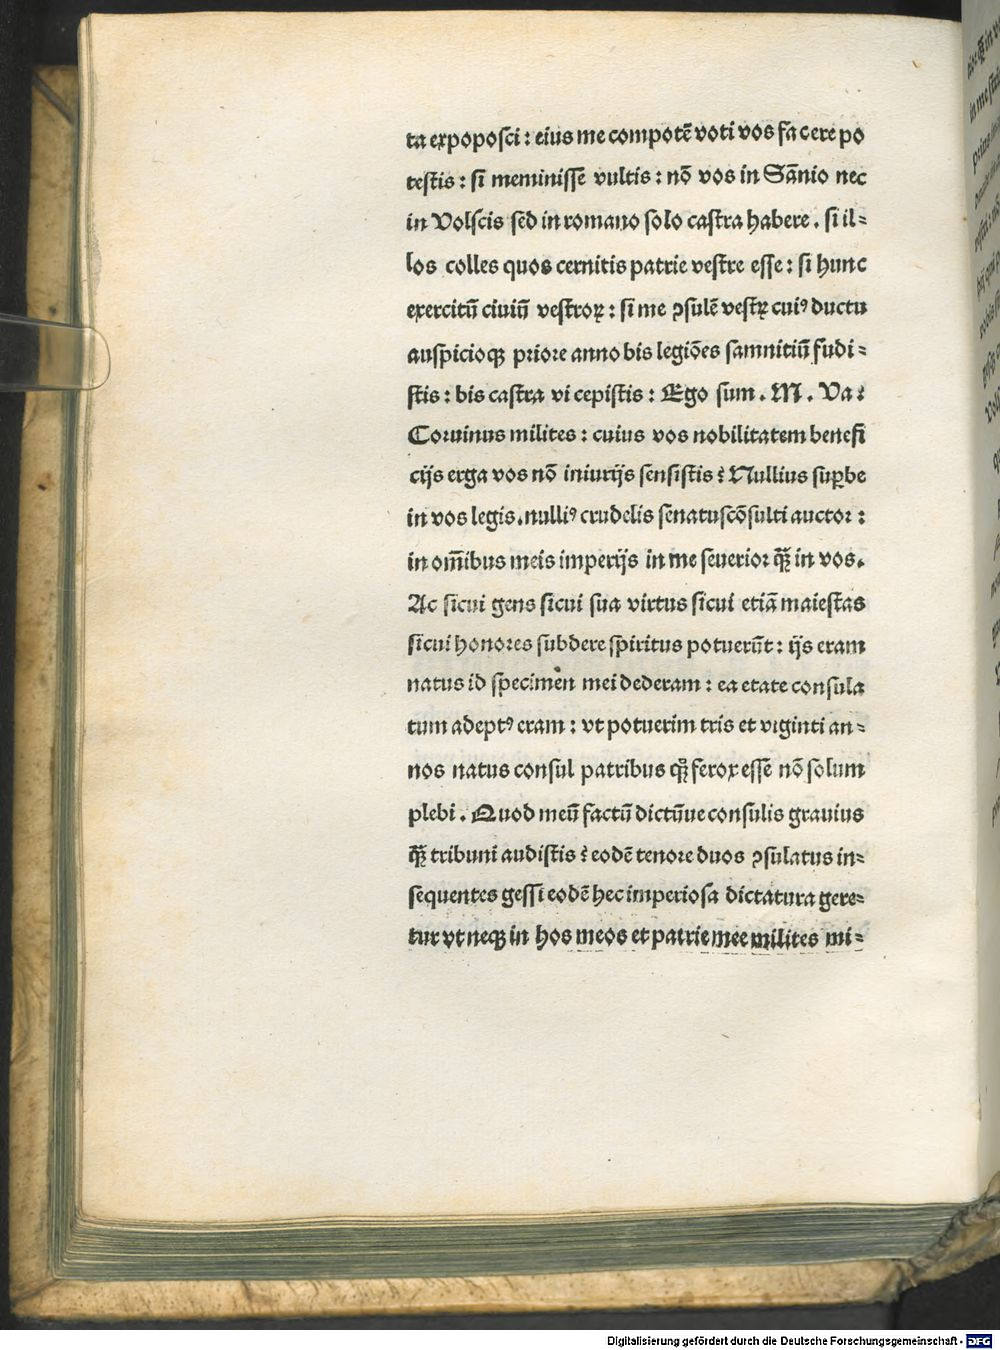 ta expoposci : eius me compotē voti vos facere po
testis : si meminisse vultis : nō vos in Sānio nec
in Volscis sed in romano solo castra habere . si il=
los colles quos cernitis patrie vestre esse : si hunc
exercitū ciuiū vestroꝝ : si me ꝯsulē vestꝝ cuiꝰ ductu
auspicioqꝫ priore anno bis legiōes samnitiū fudi=
stis : bis castra vi cepistis : Ego sum . M . Va :
Coruinus milites : cuius vos nobilitatem benefi
cijs erga vos nō iniurijs sensistis : Nullius suꝑbe
in vos legis . nulliꝰ crudelis senatuscōsulti auctor :
in om̄ibus meis imperijs in me seuerior qꝫ̄ in vos .
Ac sicui gens sicui sua virtus sicui etiā maiestas
sicui honores subdere spiritus potuerūt : ijs eram
natus id specimen mei dederam : ea etate consula
tum adeptꝰ eram : vt potuerim tris et viginti an=
nos natus consul patribus qꝫ ferox esse nō solum
plebi . Quod meū factū dictūue consulis grauius
qꝫ̄ tribuni audistis : eodē tenore duos ꝯsulatus in=
sequentes gessi eodē hec imperiosa dictatura gere=
tur vt neqꝫ in hos meos et patrie mee milites mi=
Digitalisierung gefördert durch die Deutsche Forschungsgemeinschaft - DFG